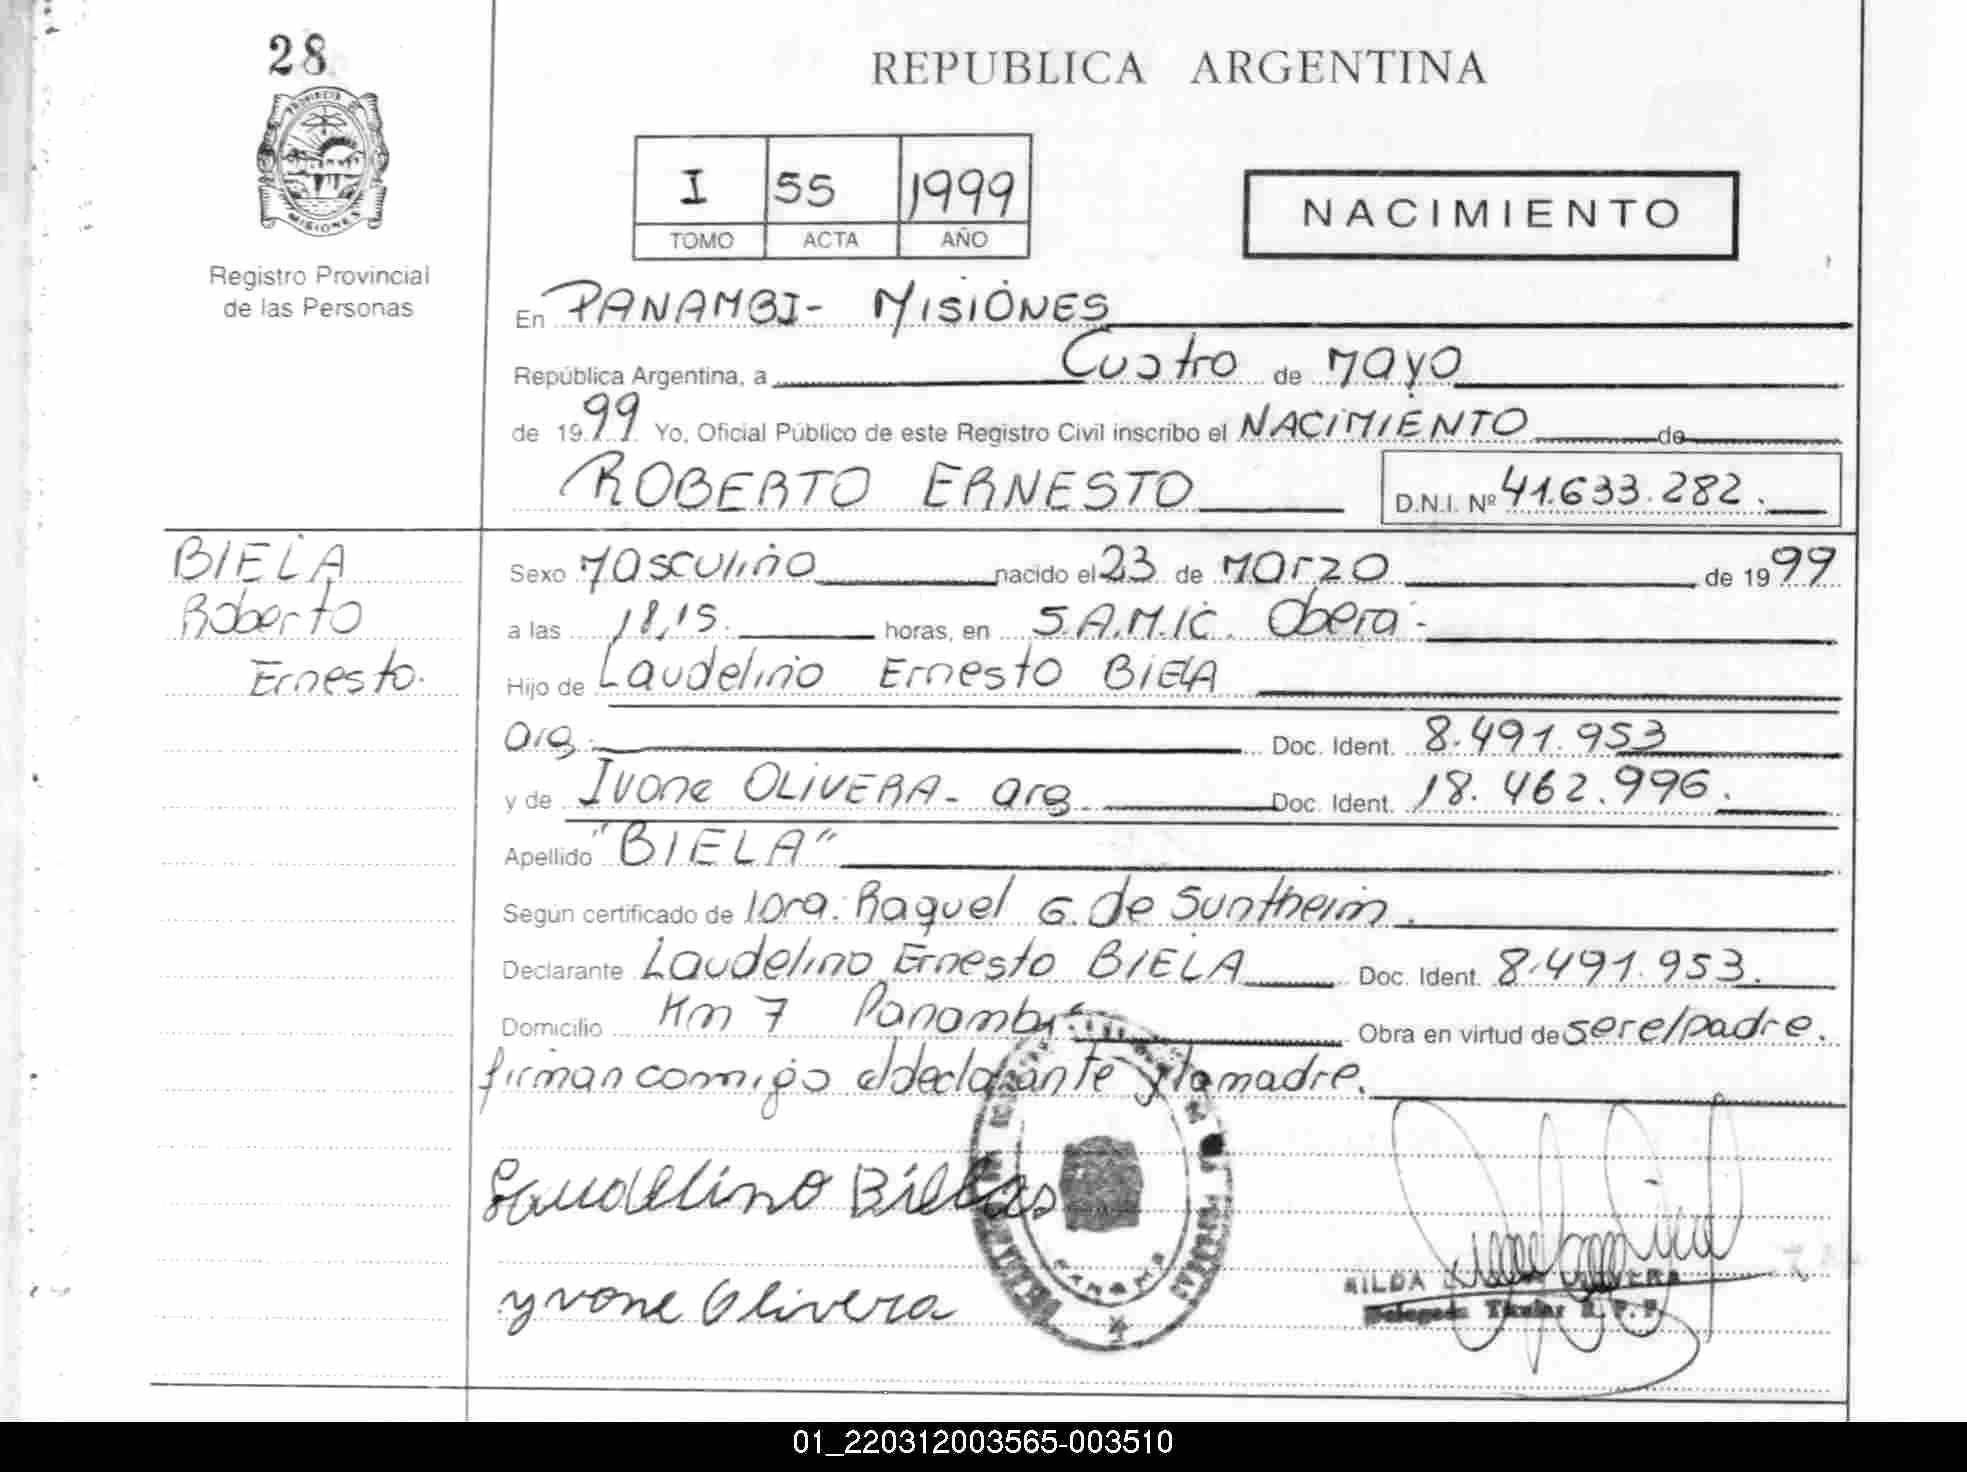 28
REPUBLICA ARGENTINA
PROVINCIA DE
MISIONES
Registro Provincial
de las Personas
I 55 1999
TOMO ACTA AÑO
NACIMIENTO
En PANAMBI- MISIONES
República Argentina, a Cuatro de Mayo
de 1999 Yo, Oficial Público de este Registro Civil inscribo el NACIMIENTO de
ROBERTO ERNESTO D.N.I. Nº 41.633.282.
BIELA
Roberto
Ernesto.
Sexo Masculino nacido el 23 de Marzo de 1999
a las 18,15. horas, en S.A.M.I.C. Oberá-
Hijo de Laudelino Ernesto BIELA
arg. Doc. Ident. 8.491.953
y de Ivone OLIVERA- arg. Doc. Ident. 18.462.996.
Apellido "BIELA"
Según certificado de Raquel G. de Suntheim.
Declarante Laudelino Ernesto BIELA Doc. Ident. 8.491.953.
Domicilio Km 7 Panambí Obra en virtud de ser el padre.
firman conmigo el declarante y la madre.
Laudelino
yvone Olivera
Titular R. P. P.
01_220312003565-003510